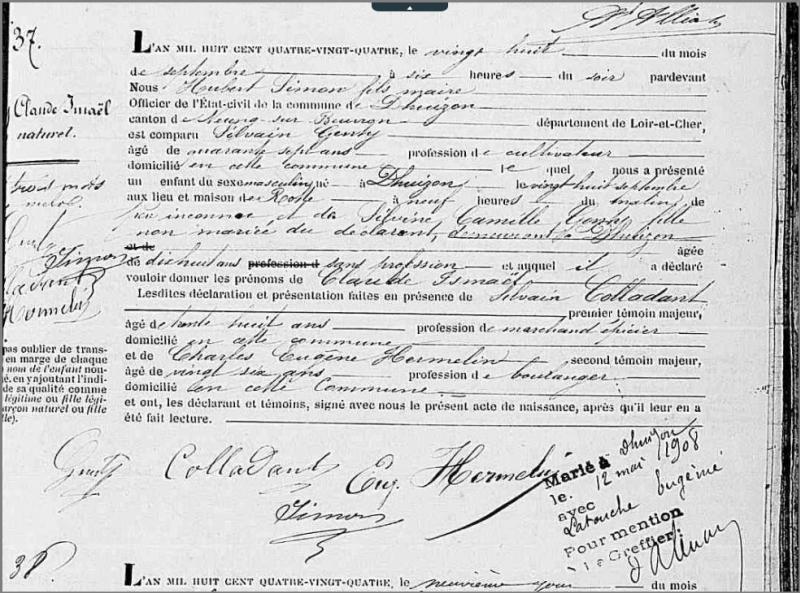 37.
Claude Ismaël
naturel.
trois mots
Simon
Colladant
Hermelin
pas oublier de trans-
en marge de chaque
nom de l'enfant nou-
né, en y ajoutant l'indi-
de sa qualité comme
légitime ou fille légi-
garçon naturel ou fille
le).
L'AN MIL HUIT CENT QUATRE-VINGT-QUATRE, le vingt huit du mois
de septembre à six heures du soir pardevant
Nous Hubert Simon fils maire
Officier de l'État-civil de la commune de Dhuizon
canton de Neung-sur Beuvron département de Loir-et-Cher,
est comparu Silvain Genty
âgé de quarante sept ans profession de cultivateur
domicilié en cette commune le quel nous a présenté
un enfant du sexe masculin, né à Dhuizon le vingt huit septembre
aux lieu et maison de à neuf heures du matin de
père inconnue et de Silvine Camille Genty fille
non mariée du déclarant, demeurant à Dhuizon
et de âgée
de dix huit ans profession d sans profession et auquel il a déclaré
vouloir donner les prénoms de Claude Ismaël
Lesdites déclaration et présentation faites en présence de Silvain Colladant
premier témoin majeur,
âgé de trente huit ans profession de marchand épicier
domicilié en cette commune
et de Charles Eugène Hermelin second témoin majeur,
âgé de vingt six ans profession de boulanger
domicilié en cette Commune
et ont, les déclarant et témoins, signé avec nous le présent acte de naissance, après qu'il leur en a
été fait lecture.
Genty Colladant Eug. Hermelin
Simon
Marié à Dhuizon
le 12 mai 1908
avec
Latouche Eugénie
Pour mention
Le Greffier:
38.
L'AN MIL HUIT CENT QUATRE-VINGT-QUATRE, le neuvième jour du mois